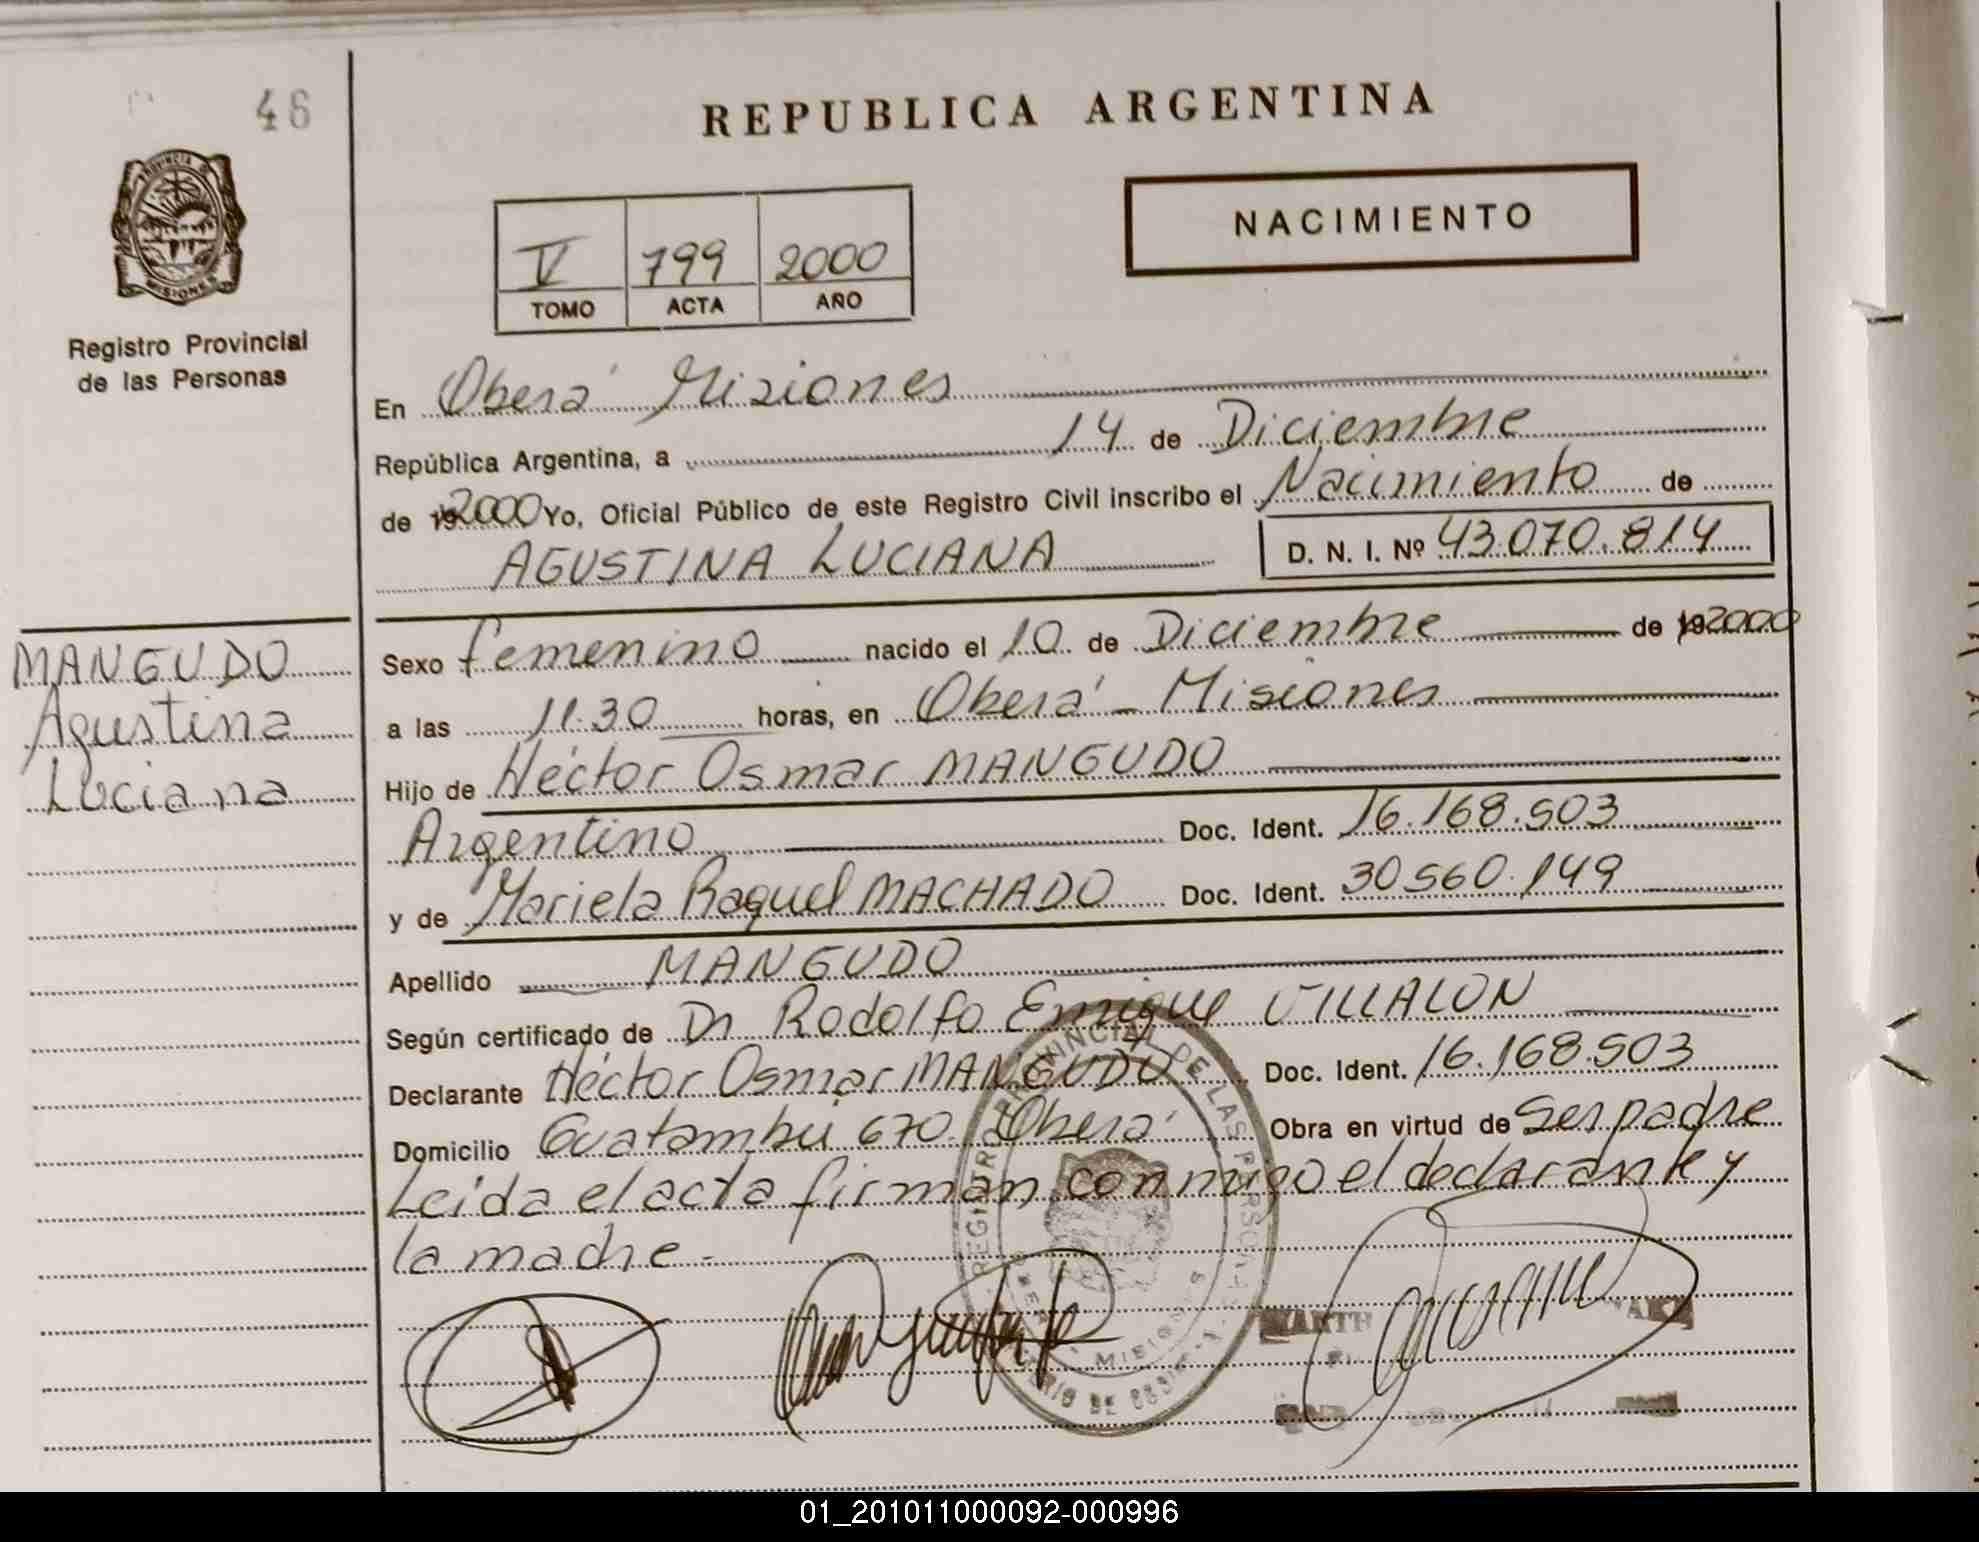 46
REPUBLICA ARGENTINA
NACIMIENTO
V 799 2000
TOMO ACTA AÑO
PROVINCIA D MISIONES
Registro Provincial
de las Personas
En Oberá Misiones
República Argentina, a 14 de Diciembre
de 192000 Yo, Oficial Público de este Registro Civil inscribo el Nacimiento de
AGUSTINA LUCIANA D. N. I. Nº 43.070.814
MANGUDO
Agustina
Luciana
Sexo femenino nacido el 10 de Diciembre de 192000
a las 11.30 horas, en Oberá - Misiones
Hijo de Héctor Osmar MANGUDO
Argentino Doc. Ident. 16.168.503
y de Mariela Raquel MACHADO Doc. Ident. 30560.149
Apellido MANGUDO
Según certificado de Dr Rodolfo Enrique VILLALON
Declarante Héctor Osmar MANGUDO Doc. Ident. 16.168.503
Domicilio Guatambú 670 Oberá Obra en virtud de Ser padre
Leida el acta firman conmigo el declarante y
la madre.-
REGISTRO PROVINCIAL DE LAS PERSONAS
MISIONES
01_201011000092-000996